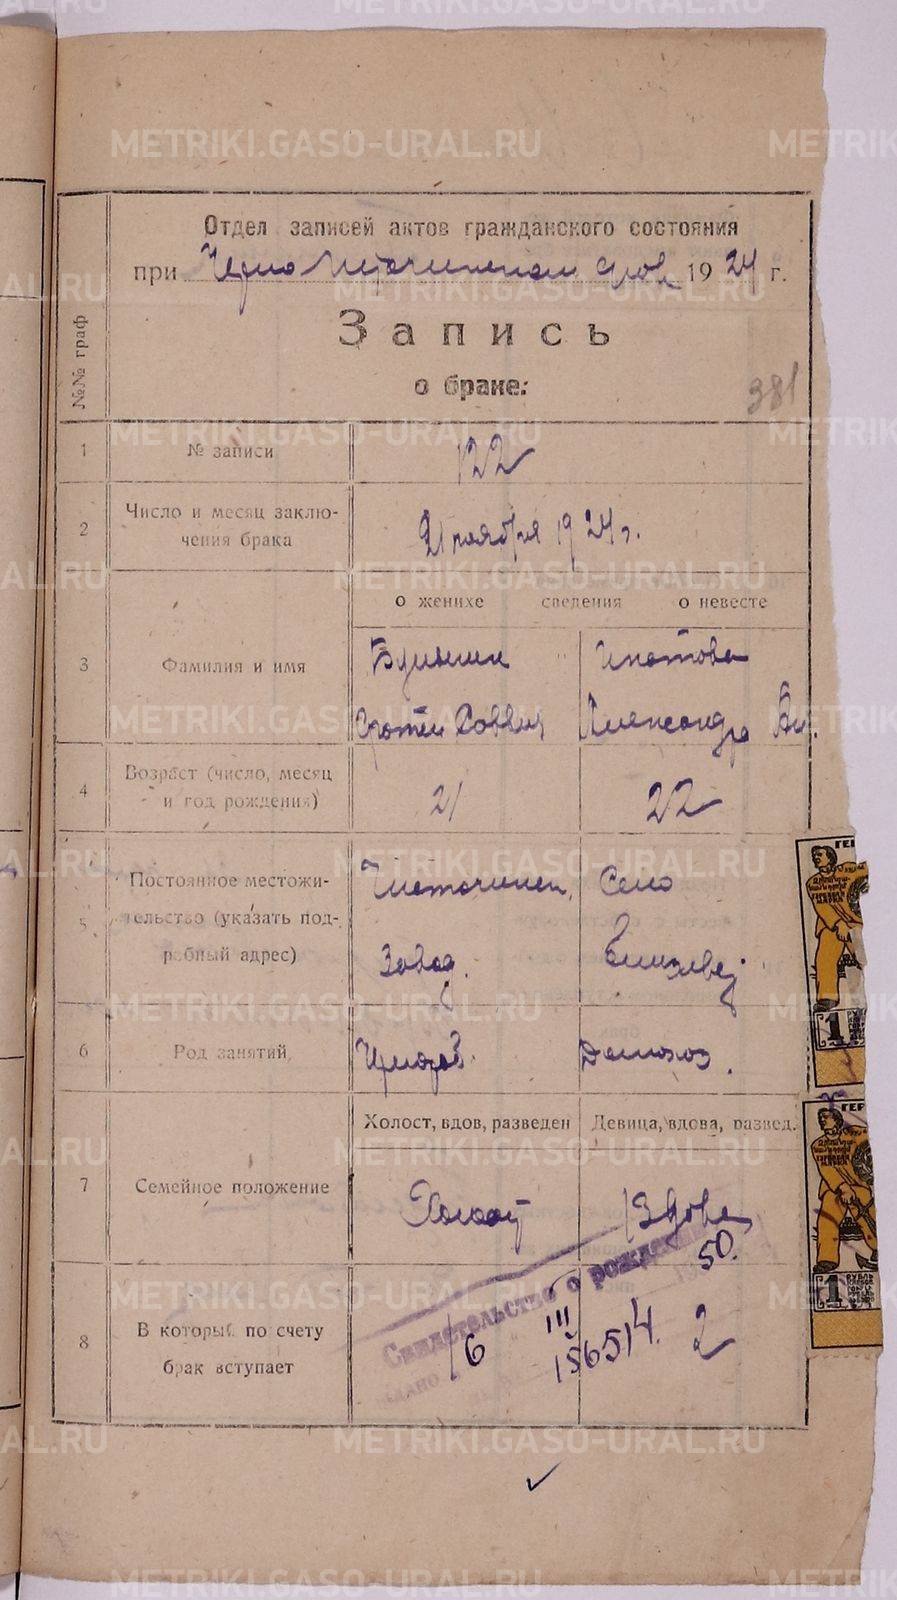 METRIKI.GASO-URAL.RU
Отдел записей актов гражданского состояния
при Черно Источинском 1924 г.
№№ граф
Запись
о браке:
381
1 № записи 122
2 Число и месяц заклю-
чения брака
21 ноября 1924 г.
о женихе сведения о невесте
3 Фамилия и имя
Ипатова
Александра
4 Возраст (число, месяц
и год рождения)
21 22
5 Постоянное местожи-
тельство (указать под-
робный адрес)
Источинск. Село
Завод. Елизавет
6 Род занятий
Домохоз.
Холост, вдов, разведен Девица, вдова, развед.
7 Семейное положение
Холост Вдова
Свидетельство о рождении
50.
8 В который по счету
брак вступает
16 III 2
ГЕР
1
ГЕР
1